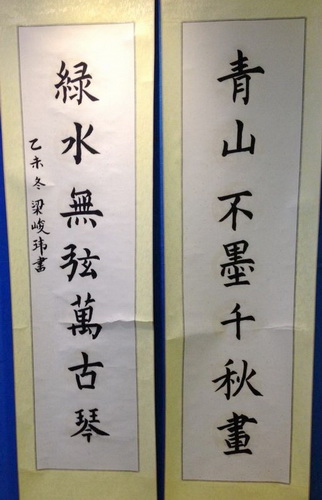 青山不墨千秋畫
綠水無弦萬古琴
乙未冬梁峻瑋書